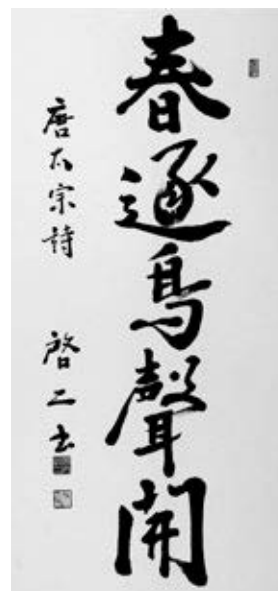 春逐鳥聲開
唐太宗詩 啓二書